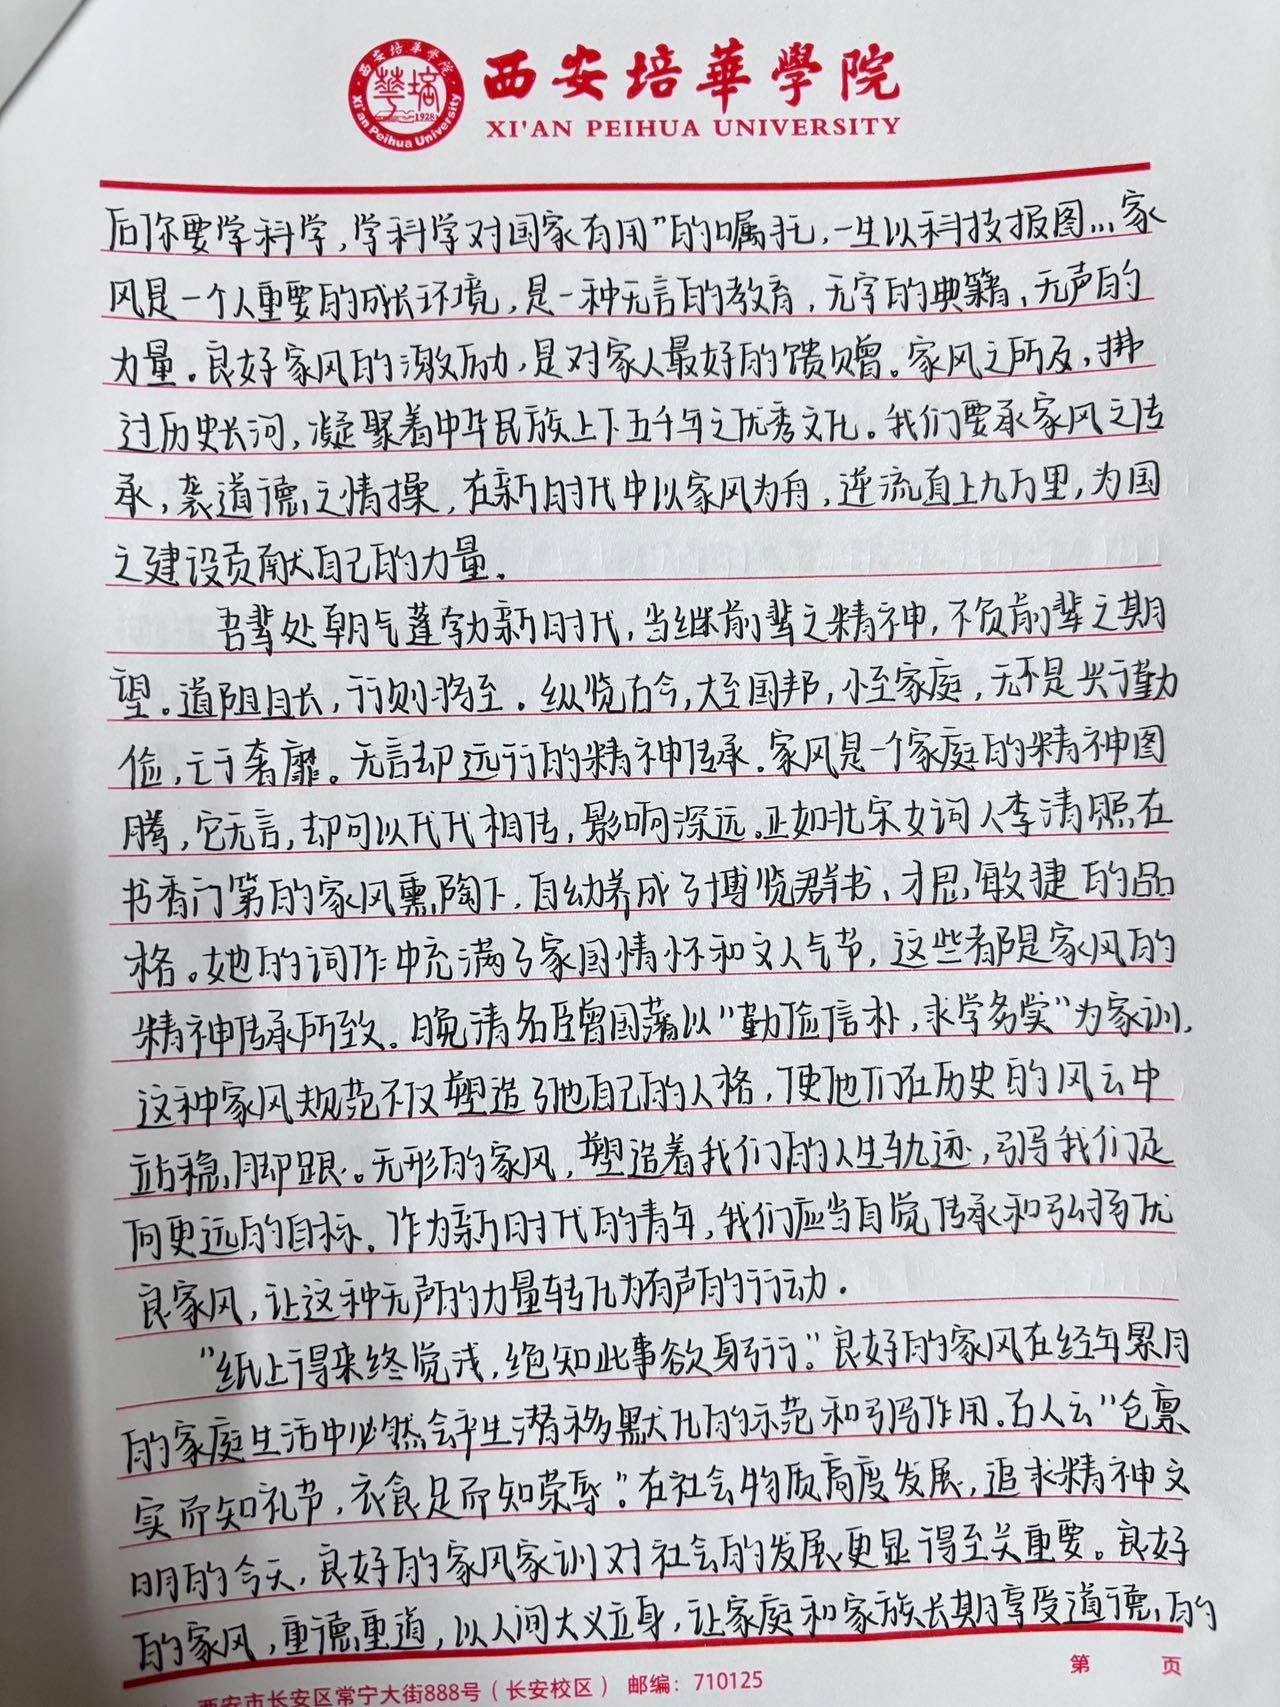 西安培華學院
XI'AN PEIHUA UNIVERSITY
西安培華學院
Xi'an Peihua University
1928
后你要学科学，学科学对国家有用”的嘱托，一生以科技报图…家
风是一个人重要的成长环境，是一种无言的教育，无字的典籍、无声的
力量。良好家风的激励，是对家人最好的馈赠。家风之所及，拂
过历史长河，凝聚着中华民族上下五千年之优秀文化。我们要承家风之传
承，袭道德之情操，在新时代中以家风为舟，逆流直上九万里，为国
之建设贡献自己的力量。
吾辈处朝气蓬勃新时代，当继前辈之精神，不负前辈之期
望。道阻且长，行则将至。纵览古今，大至国邦，小至家庭，无不是兴于勤
俭，亡于奢靡。无言却远行的精神传承。家风是一个家庭的精神图
腾，它无言，却可以代代相传，影响深远。正如北宋女词人李清照在
书香门第的家风熏陶下，自幼养成了博览群书、才思敏捷的品
格。她的词作中充满了家国情怀和文人气节，这些都是家风的
精神传承所致。晚清名臣曾国藩以“勤俭信朴，求学务实”为家训，
这种家风规范不仅塑造了他自己的人格，使他们在历史的风云中
站稳脚跟。无形的家风，塑造着我们的人生轨迹，引导我们走
向更远的目标。作为新时代的青年，我们应当自觉传承和弘扬优
良家风，让这种无声的力量转化为有声的行动。
“纸上得来终觉浅，绝知此事欲躬行。”良好的家风在经年累月
的家庭生活中必然会产生潜移默化的示范和引导作用。古人云“仓廪
实而知礼节，衣食足而知荣辱”。在社会物质高度发展，追求精神文
明的今天，良好的家风家训对社会的发展更显得至关重要。良好
的家风，重德重道，以人间大义立身，让家庭和家族长期享受道德的
第 页
西安市长安区常宁大街888号（长安校区） 邮编：710125